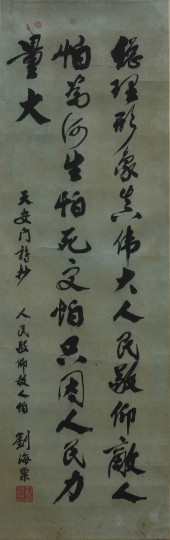 總理形象真伟大人民敬仰敵人
怕為何生怕死又怕只因人民力
量大
天安门詩抄 人民敬仰敌人怕 劉海粟